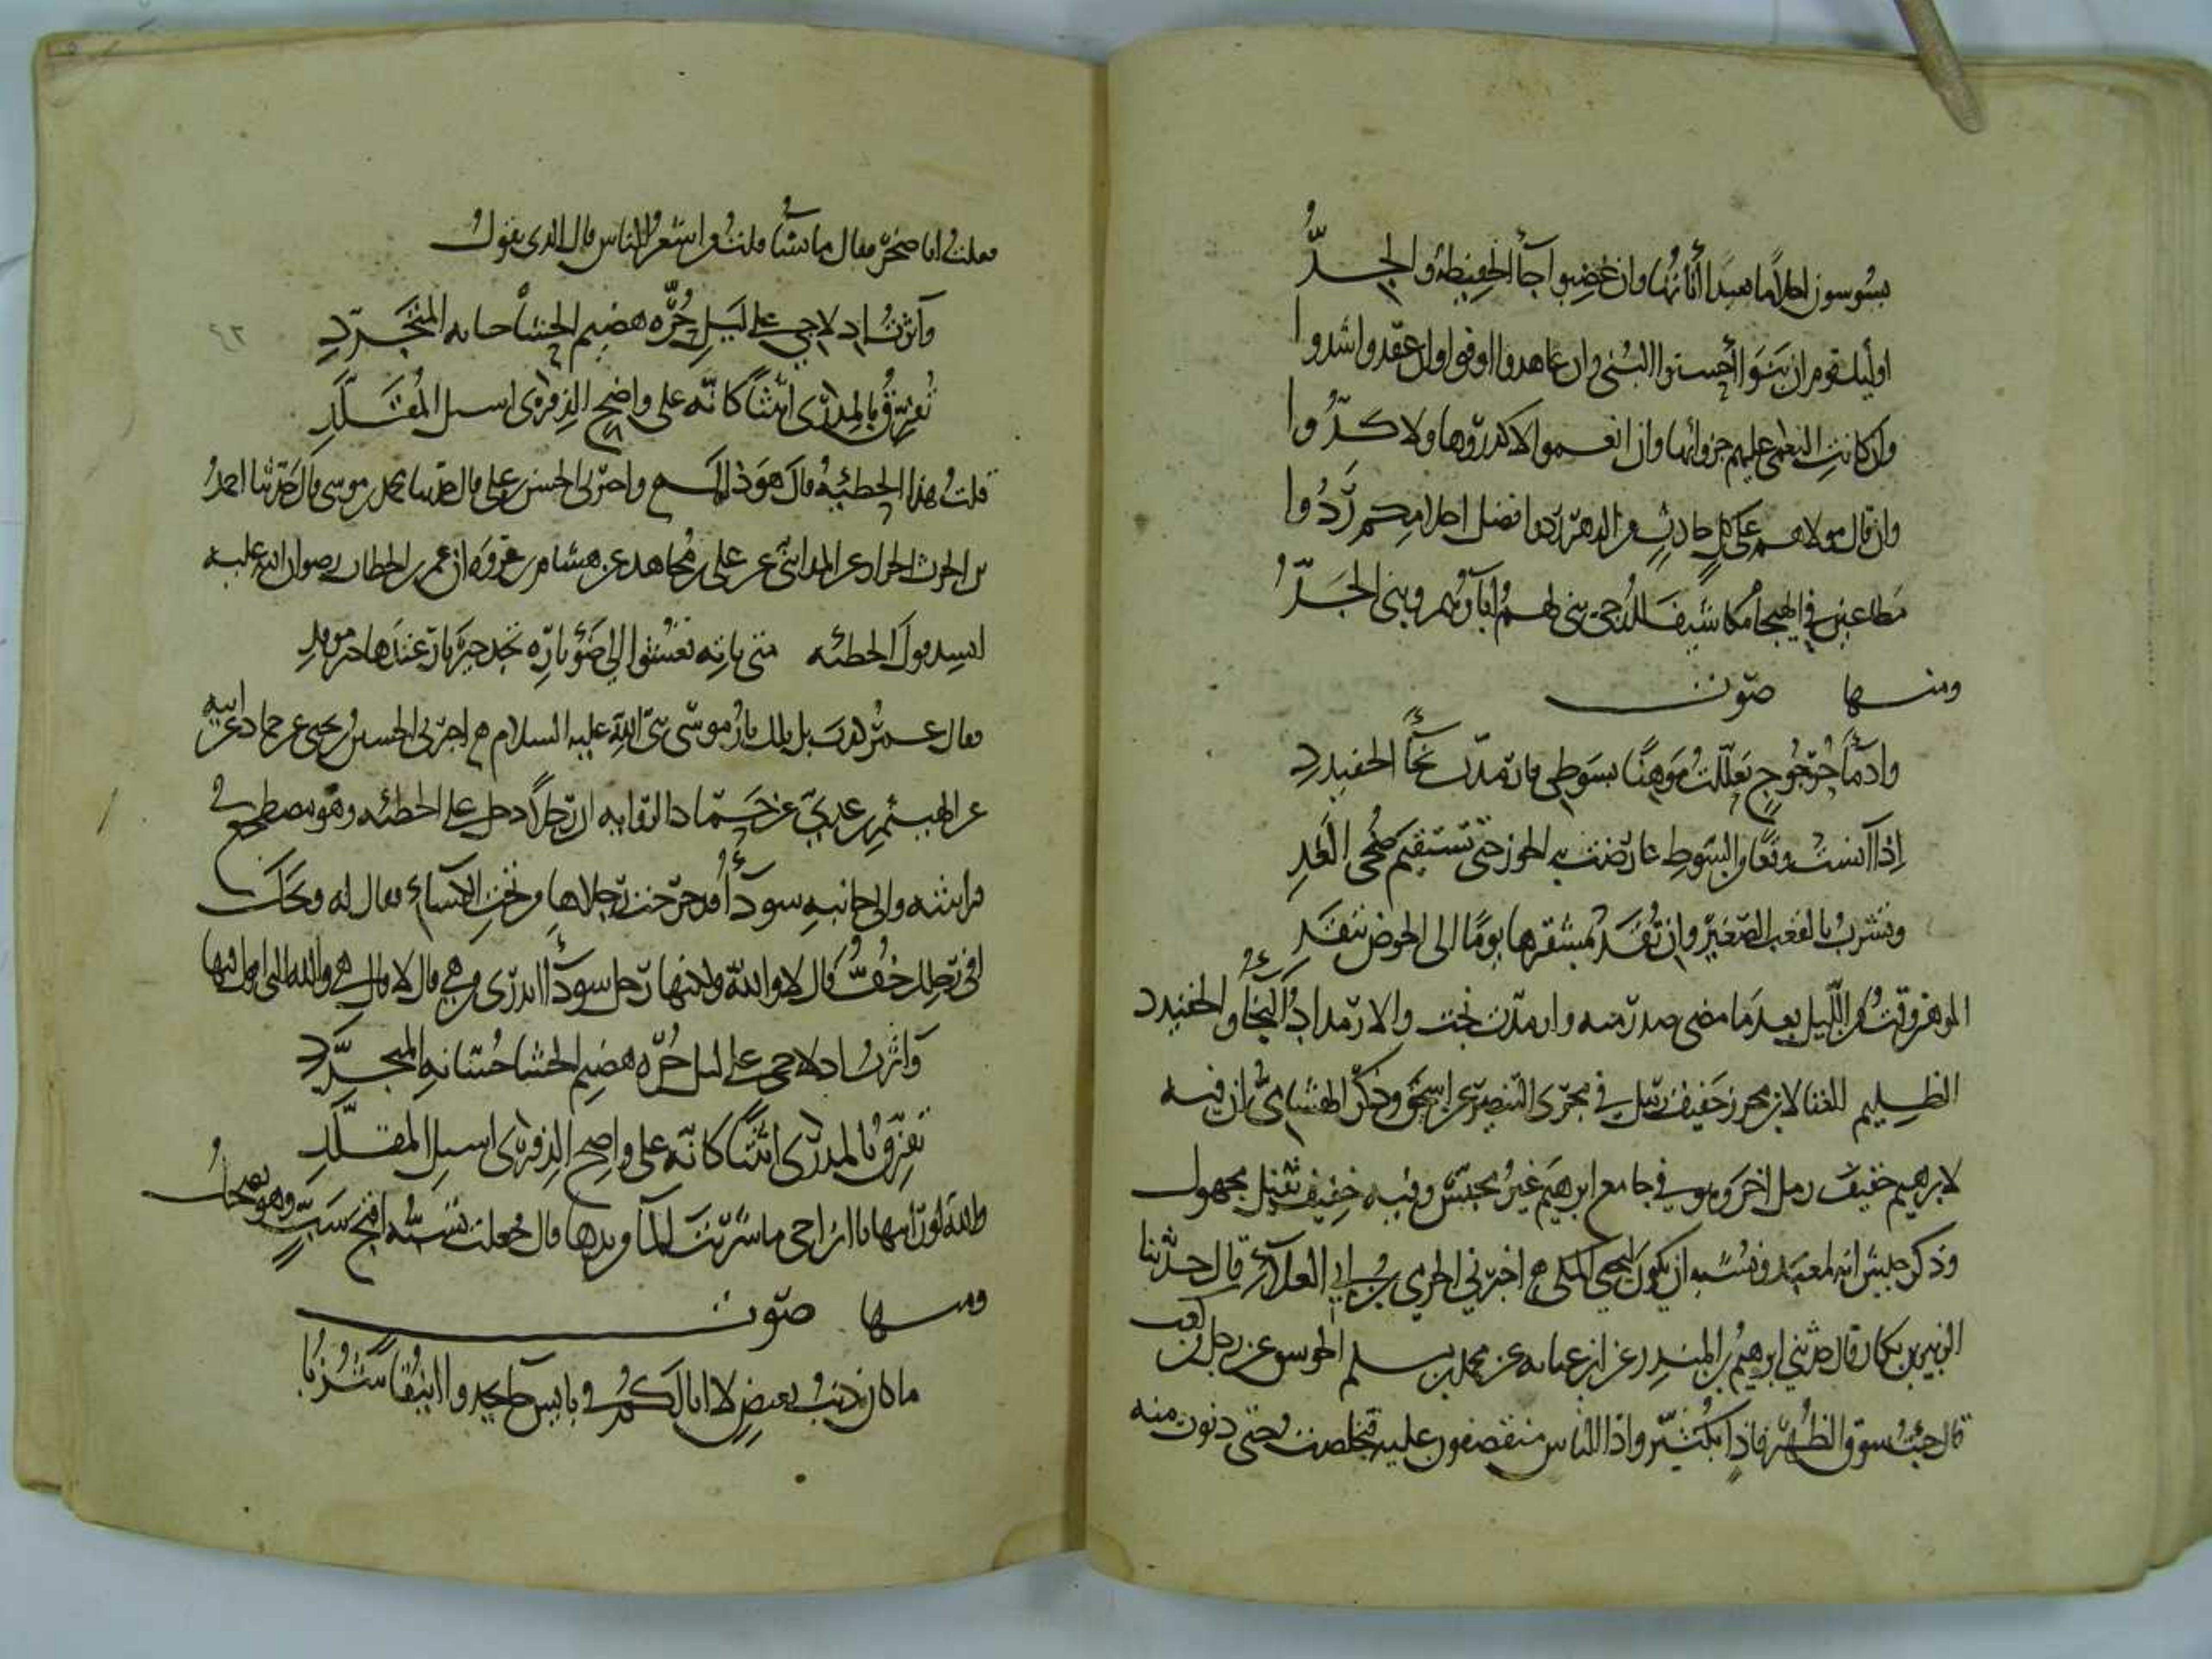 يسوسون احلاما بعيدا أناتها وان غضبوا جآ الحفيظة والجدُّ
اوليك قوم ان بنوا أحسنوا البنى وان عاهدوا اوفوا وان عقدوا اشدوا
وان كانت النعمى عليهم جزوا بها وان انعموا لا كدروها ولا كدُّوا
وان قال مولاهم على كل حادث من الدهر ردوا فضل احلامكم رَدُّوا
مطاعين في الهيجا مكاشيف للدجى بنى لهم اباؤهم وبنى الجَدُّ
ومنها صوت
وادمآ حُرجوج تعللت موهنًا بسوطى فارمدّت نجآ الحفيدد
اذا آنست وقعا من السوط عارضت به الجور حتى تستقيم ضُحى الغدِ
وتشرب بالقعب الصغير وان تُقد بمشفرها يومًا الى الحوض تنقد
الموهن وقت من الليل بعد ما مضى صدر منه وارمدّت نجت والارمداد النجآ والخفيدد
الظليم الغنا لابن محرز خفيف رمل في مجرى البنصر عن اسحق وذكر الهشامى ان فيه
لابرهيم خفيف رمل اخر وهو في جامع ابرهيم غير مجنّس وفيه خفيف ثقيل مجهول
وذكر حبش انه لمعبد ويشبه ان يكون ليحيى المكى اخبرني الحرمى بن ابي العلآ قال حدثنا
الزبير بن بكار قال حدثني ابرهيم بن المنذر عن ابن عبايه عن محمد بن مسلم الجوسق عن رجل من كعب
قال جئت سوق الظهر فاذا بكثيّر واذا الناس متقصفون عليه فتخلصت حتى دنوت منه
فقلت ابا صخر فقال ما تشا قلت من اشعر الناس قال الذى يقول
وآثرتُ ادلاجي على ليل حُرّه هضيم الحشا حسانه المتجَرّدِ
تُفرّق بالمدرى أثيثًا كانّه على واضح الذفرى اسيل المُقَلّدِ
قلت هذا الحطيئه قال هو ذاك واخبرنى الحسن بن على قال حدثنا محمد بن موسى قال حدّثنا احمد
بن الحرث الخراز عن المداينى عن على بن مُجاهد عن هشام بن عروة ان عمر بن الخطاب رضوان الله عليه
انشد قول الحطئه متى تاته تعشوا الى ضَوْ ناره تجد خير نار عندها خير موقد
فقال عمر كذب بل تلك نار موسى نبى الله عليه السلام اخبرنى الحسين بن يحيى عن حماد عن ابيه
عن الهيثم بن عدى عن حماد الراويه ان رجلا دخل على الحطئه وهو مضطجع في
فراشه والى جانبه سودآ قد اخرجت رجلاها من تحت الكسآء فقال له ويحك
افى رجلك خفُّ قال لا والله ولكنها رجل سودآ اتدرى من هي قال لا قال هي والله التى اقول فيها
وآثرت ادلاجى على ليل حُرّه هضيم الحشا حُسّانه المتجرّدِ
تفرّق بالمدرى اثيثًا كانّه على واضح الذفرى اسيل المقلّدِ
والله لو رايتها ياابن اخى ما شربت المآ من يدها قال فجعلت تسبّه اقبح سبّ وهو يضحك
ومنها صوت
ما كان ذنب بغيض لا ابا لكم في بايس جآ يحدوا اينقا شُزُبا